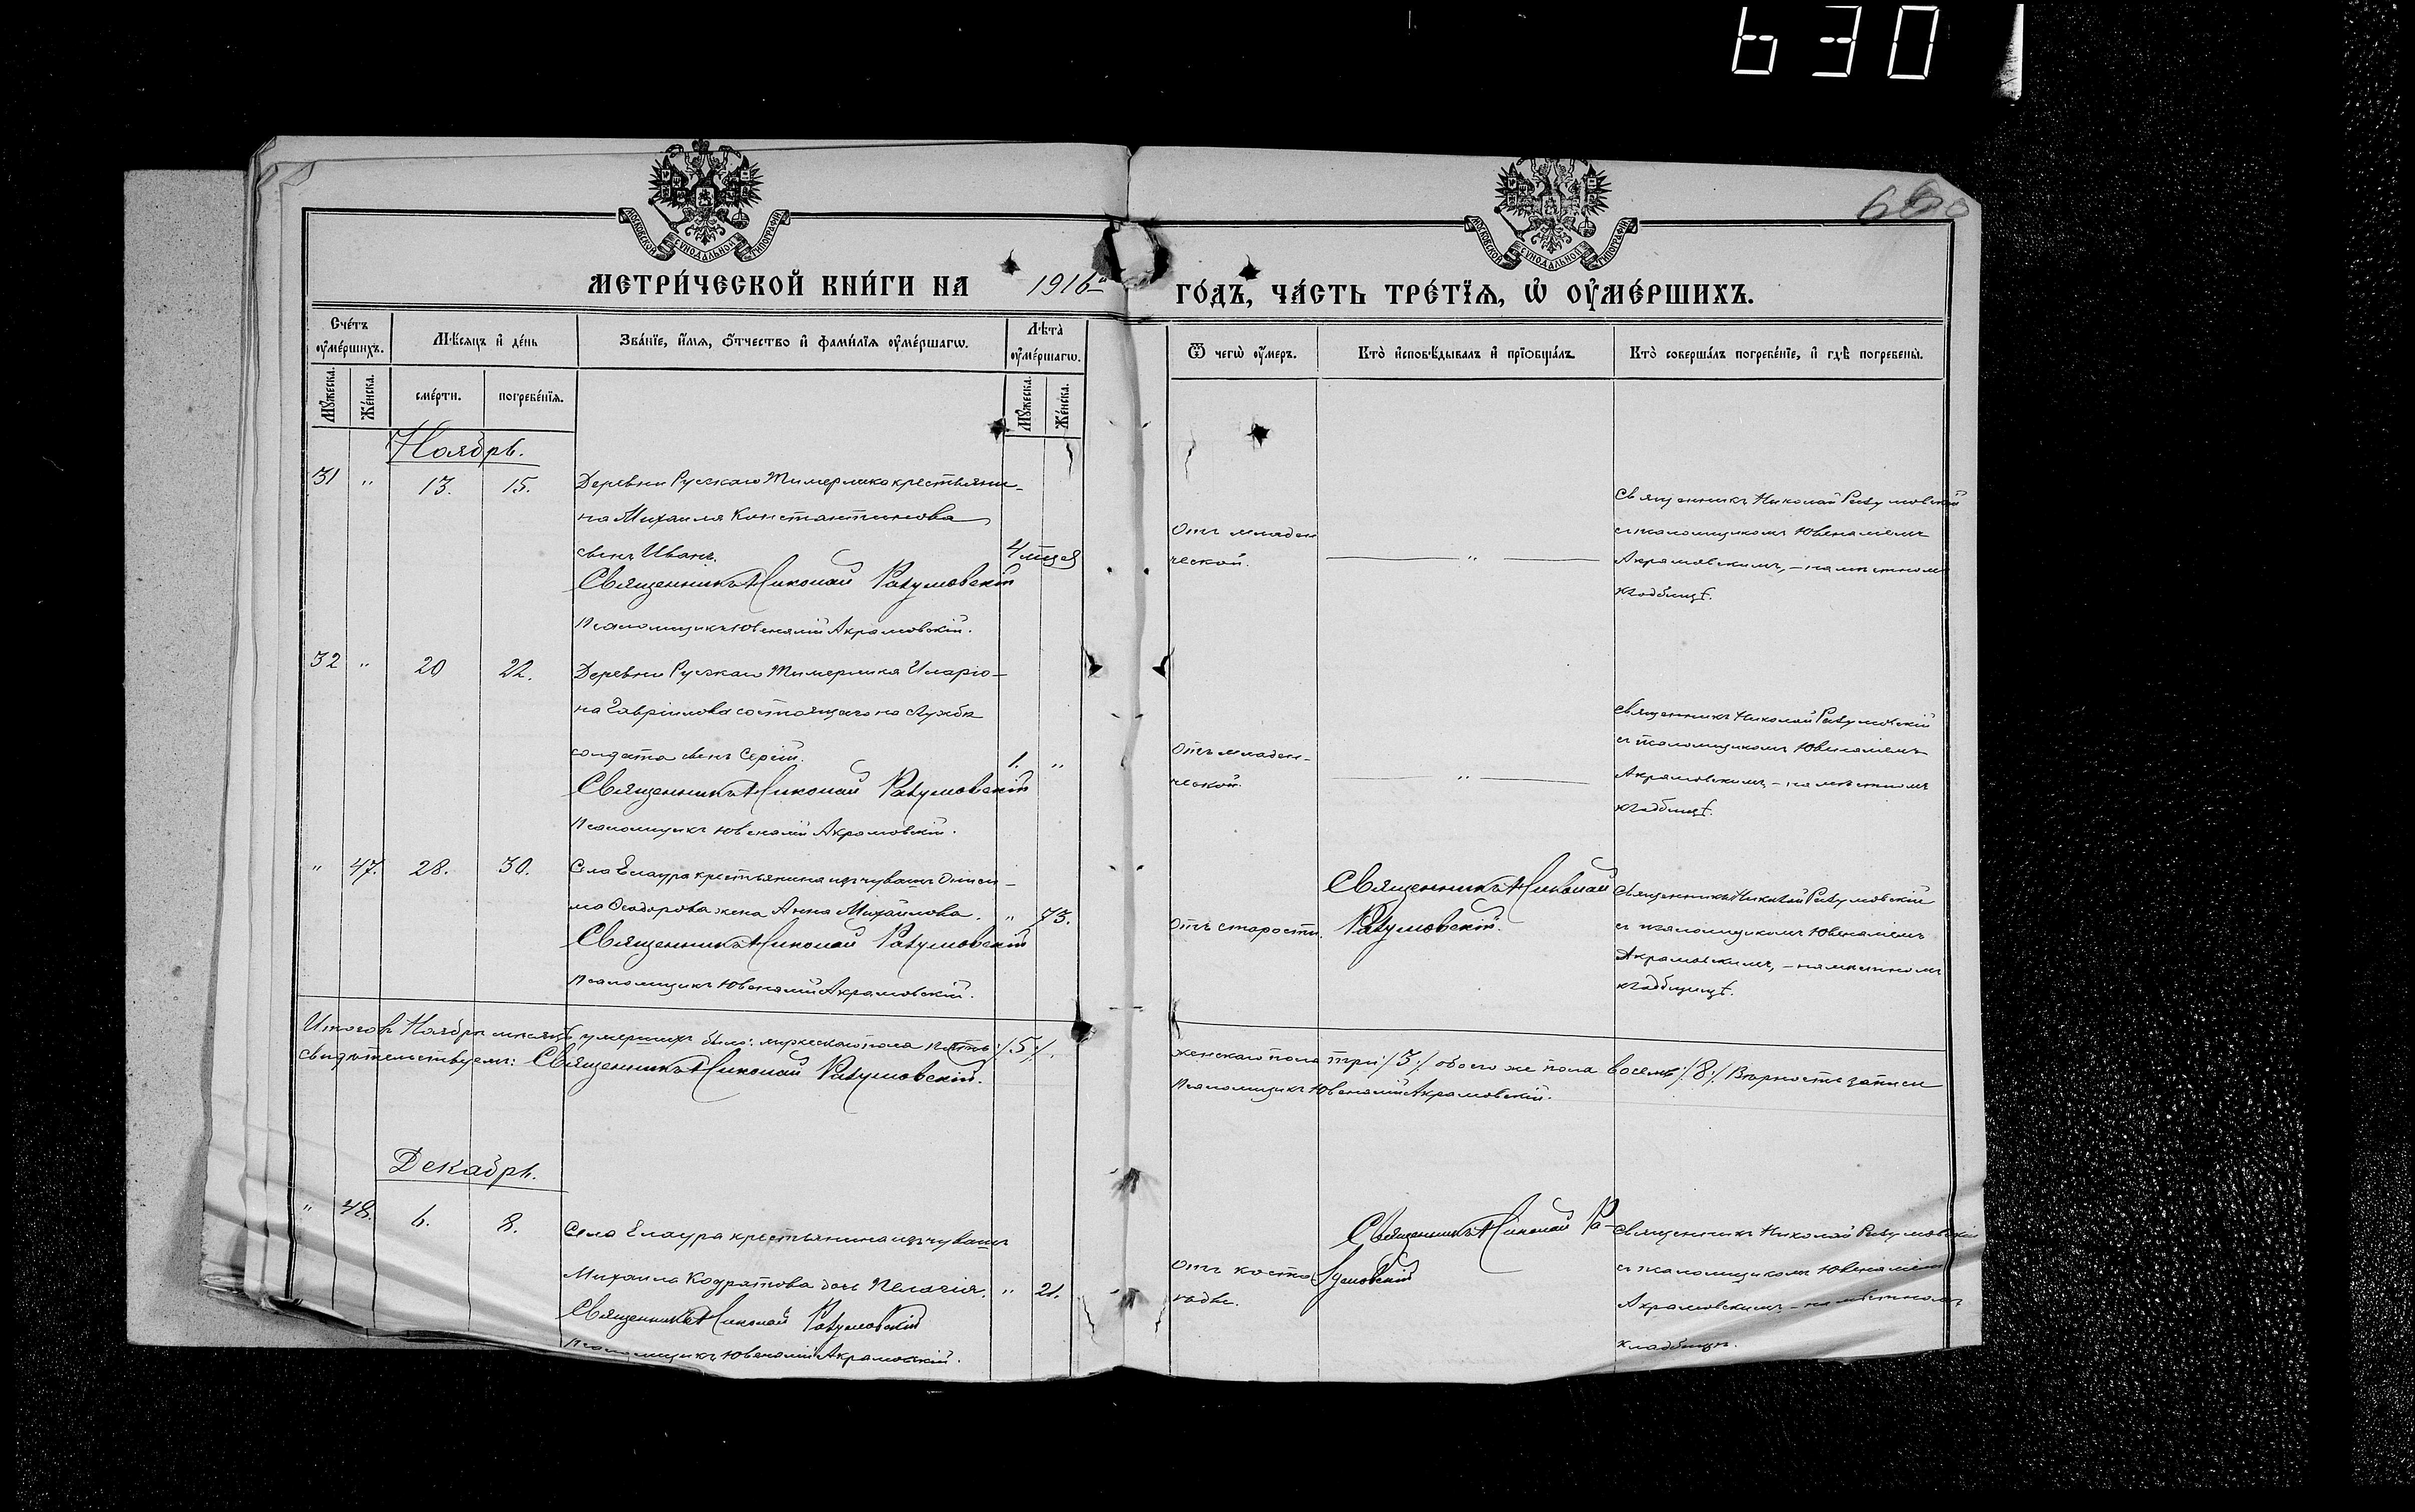 630
660
МОСКОВСКОЙ СѴНОДАЛЬНОЙ ТИПОГРАФІИ
МОСКОВСКОЙ СѴНОДАЛЬНОЙ ТИПОГРАФІИ
МЕТРИ́ЧЕСКОЙ КНИ́ГИ НА 1916 й
ГО́ДЪ, ЧА́СТЬ ТРЕ́ТЇѦ, Ѡ ОУМЕ́РШИХЪ.
Сче́тъ оумéршихъ.
Мꙋ́жеска.
Же́нска.
Мѣ́сяцъ и де́нь
сме́рти.
погребе́нїѧ.
Зва́нїе, и́мѧ, о́тчество и фами́лїѧ оумéршагѡ.
Лѣ́та оумéршагѡ.
Мꙋ́жеска.
Же́нска.
Ѿ чегѡ̀ оу́меръ.
Кто̀ исповѣ́дывалъ и прїѻбща́лъ.
Кто̀ соверша́лъ погребе́нїе, и гдѣ̀ погребены̀.
Ноябрь.
31 " 13. 15. Деревни Русскаго Тимерлика крестьяни-
на Михаила Константинова
сынъ Иванъ. 4 мѣсяц
Священникъ Николай Разумовскій
Псаломщикъ Ювеналій Акрамовскій.
Отъ младен
ческой.
"
Священникъ Николай Разумовскій
съ псаломщикомъ Ювеналіемъ
Акрамовскимъ, – на мѣстномъ
кладбищѣ.
32 " 20 22. Деревни Русскаго Тимерлика Иларіо-
на Гавріилова состоящаго на службѣ
солдата сынъ Сергій. 1. "
Священникъ Николай Разумовскій
Псаломщикъ Ювеналій Акрамовскій.
Отъ младен-
ческой.
"
Священникъ Николай Разумовскій
съ псаломщикомъ Ювеналіемъ
Акрамовскимъ – на мѣстномъ
кладбищѣ.
" 47. 28. 30. Села Елаура крестьянина изъ чувашъ Ониси-
ма Ѳеодорова жена Анна Михайлова. " 73.
Священникъ Николай Разумовскій
Псаломщикъ Ювеналій Акрамовскій.
Отъ старости.
Священникъ Николай
Разумовскій.
Священникъ Николай Разумовскій
съ псаломщикомъ Ювеналіемъ
Акрамовскимъ, – на мѣстномъ
кладбищѣ.
Итого въ Ноябрѣ мѣсяцѣ умершихъ было: мужескаго пола пять /:5:/.
женскаго пола три /:3:/ обоего же пола восемь /:8:/ Вѣрность записи
свидѣтельствуемъ: Священникъ Николай Разумовскій.
Псаломщикъ Ювеналій Акрамовскій.
Декабрь.
" 48. 6. 8. Села Елаура крестьянина изъ чувашъ
Михаила Кодратова дочь Пелагія. " 21.
Священникъ Николай Разумовскій
Псаломщикъ Ювеналій Акрамовскій.
Отъ косто
Священникъ Николай Ра-
зумовскій
Священникъ Николай Разумовскій
съ псаломщикомъ Ювеналіемъ
Акрамовскимъ – на мѣстномъ
кладбищѣ.